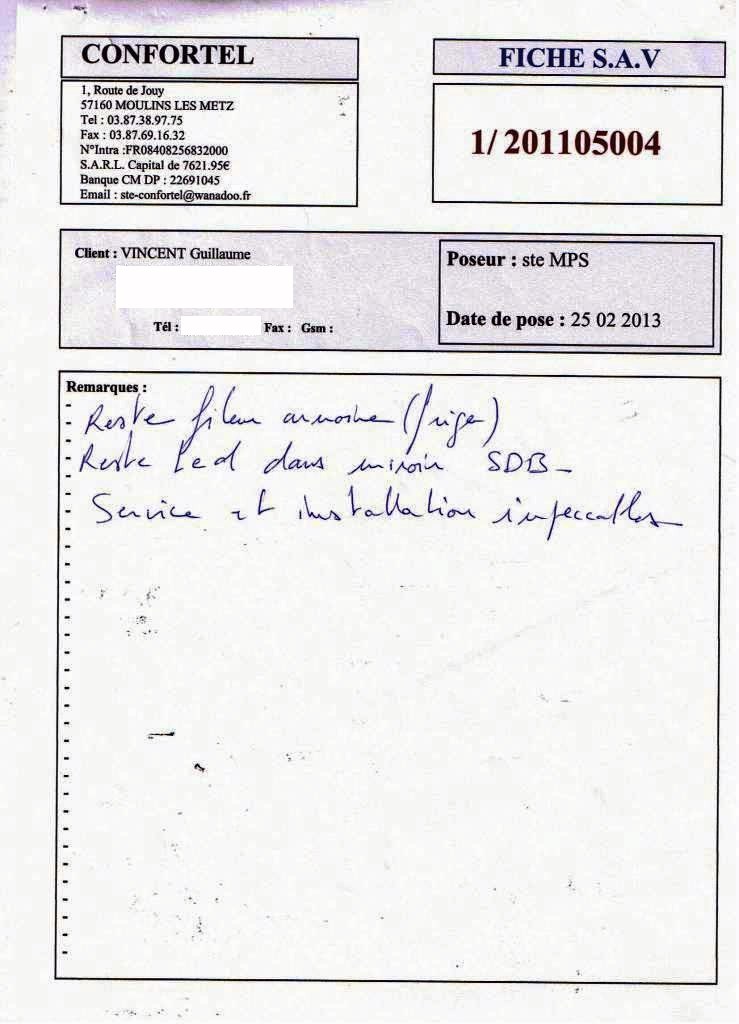 CONFORTEL
1, Route de Jouy
57160 MOULINS LES METZ
Tel : 03.87.38.97.75
Fax : 03.87.69.16.32
N°Intra :FR08408256832000
S.A.R.L. Capital de 7621.95€
Banque CM DP : 22691045
Email : ste-confortel@wanadoo.fr
FICHE S.A.V
1/ 201105004
Client : VINCENT Guillaume
Tél : Fax : Gsm :
Poseur : ste MPS
Date de pose : 25 02 2013
Remarques :
Reste armoire (frigo)
Reste Led dans miroir SDB -
Service et installation impeccables